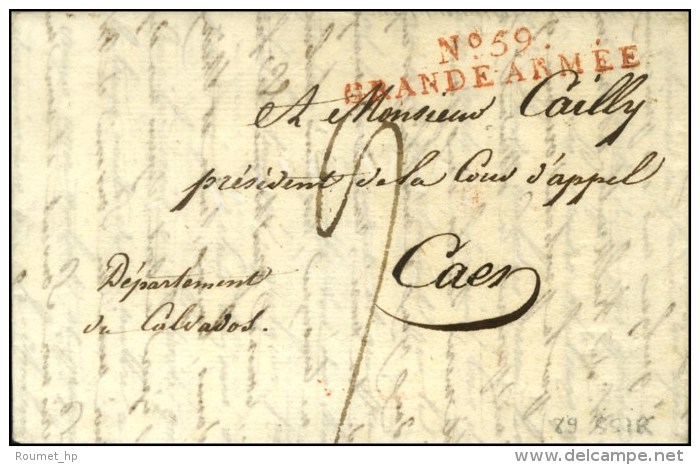 No. 59.
GRANDE ARMÉE
A Monsieur Cailly
président de la Cour d'appel
Caen
Département
du Calvados.
Roumet_hp
delcampe.net